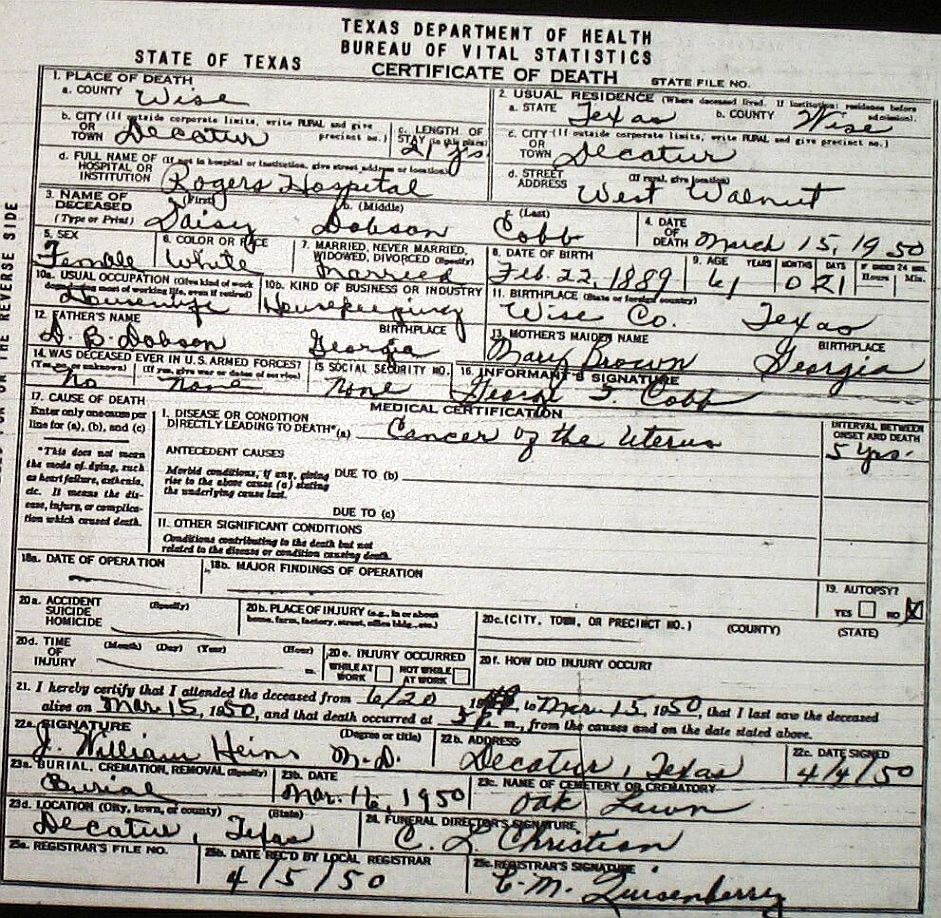 TEXAS DEPARTMENT OF HEALTH
BUREAU OF VITAL STATISTICS
STATE OF TEXAS
CERTIFICATE OF DEATH
STATE FILE NO.
1. PLACE OF DEATH
a. COUNTY Wise
2. USUAL RESIDENCE (Where deceased lived. If institution: residence before admission).
a. STATE Texas b. COUNTY Wise
b. CITY (If outside corporate limits, write RURAL and give precinct no.) OR TOWN Decatur
c. LENGTH OF STAY (in this place) 21 yrs.
c. CITY (If outside corporate limits, write RURAL and give precinct no.) OR TOWN Decatur
d. FULL NAME OF HOSPITAL OR INSTITUTION (If not in hospital or institution, give street address or location) Rogers Hospital
d. STREET ADDRESS (If rural, give location) West Walnut
3. NAME OF DECEASED (Type or Print) (First) Daisy b. (Middle) Dobson c. (Last) Cobb
4. DATE OF DEATH March 15, 1950
5. SEX Female
6. COLOR OR RACE White
7. MARRIED, NEVER MARRIED, WIDOWED, DIVORCED (Specify) Married
8. DATE OF BIRTH Feb. 22, 1889
9. AGE YEARS 61 MONTHS 0 DAYS 21 IF UNDER 24 HRS. Hours Min.
10a. USUAL OCCUPATION (Give kind of work done during most of working life, even if retired) Housewife
10b. KIND OF BUSINESS OR INDUSTRY Housekeeping
11. BIRTHPLACE (State or foreign country) Wise Co. Texas
12. FATHER'S NAME D. B. Dobson BIRTHPLACE Georgia
13. MOTHER'S MAIDEN NAME Mary Brown BIRTHPLACE Georgia
14. WAS DECEASED EVER IN U.S. ARMED FORCES?
(Yes, no, or unknown) No (If yes, give war or dates of service) None
15 SOCIAL SECURITY NO. None
16. INFORMANT'S SIGNATURE George T. Cobb
17. CAUSE OF DEATH
Enter only one cause per line for (a), (b), and (c)
MEDICAL CERTIFICATION
I. DISEASE OR CONDITION DIRECTLY LEADING TO DEATH* (a) Cancer of the Uterus
INTERVAL BETWEEN ONSET AND DEATH
5 yrs.
*This does not mean the mode of dying, such as heart failure, asthenia, etc. It means the disease, injury, or complication which caused death.
ANTECEDENT CAUSES
Morbid conditions, if any, giving rise to the above cause (a) stating the underlying cause last.
DUE TO (b)
DUE TO (c)
II. OTHER SIGNIFICANT CONDITIONS
Conditions contributing to the death but not related to the disease or condition causing death.
18a. DATE OF OPERATION
18b. MAJOR FINDINGS OF OPERATION
19. AUTOPSY?
YES NO X
20a. ACCIDENT SUICIDE HOMICIDE (Specify)
20b. PLACE OF INJURY (e.g., in or about home, farm, factory, street, office bldg., etc.)
20c. (CITY, TOWN, OR PRECINCT NO.) (COUNTY) (STATE)
20d. TIME OF INJURY (Month) (Day) (Year) (Hour) m.
20e. INJURY OCCURRED
WHILE AT WORK NOT WHILE AT WORK
20f. HOW DID INJURY OCCUR?
21. I hereby certify that I attended the deceased from 6/20 19 to Mar. 15, 1950, that I last saw the deceased
alive on Mar. 15, 1950, and that death occurred at 5 P. m., from the causes and on the date stated above.
22a. SIGNATURE (Degree or title) J. William Heins M.D.
22b. ADDRESS Decatur, Texas
22c. DATE SIGNED 4/4/50
23a. BURIAL, CREMATION, REMOVAL (Specify) Burial
23b. DATE Mar. 16, 1950
23c. NAME OF CEMETERY OR CREMATORY Oak Lawn
23d. LOCATION (City, town, or county) (State) Decatur, Texas
24. FUNERAL DIRECTOR'S SIGNATURE C. L. Christian
25a. REGISTRAR'S FILE NO.
25b. DATE REC'D BY LOCAL REGISTRAR 4/5/50
25c. REGISTRAR'S SIGNATURE C. M. Quisenberry
THE REVERSE SIDE